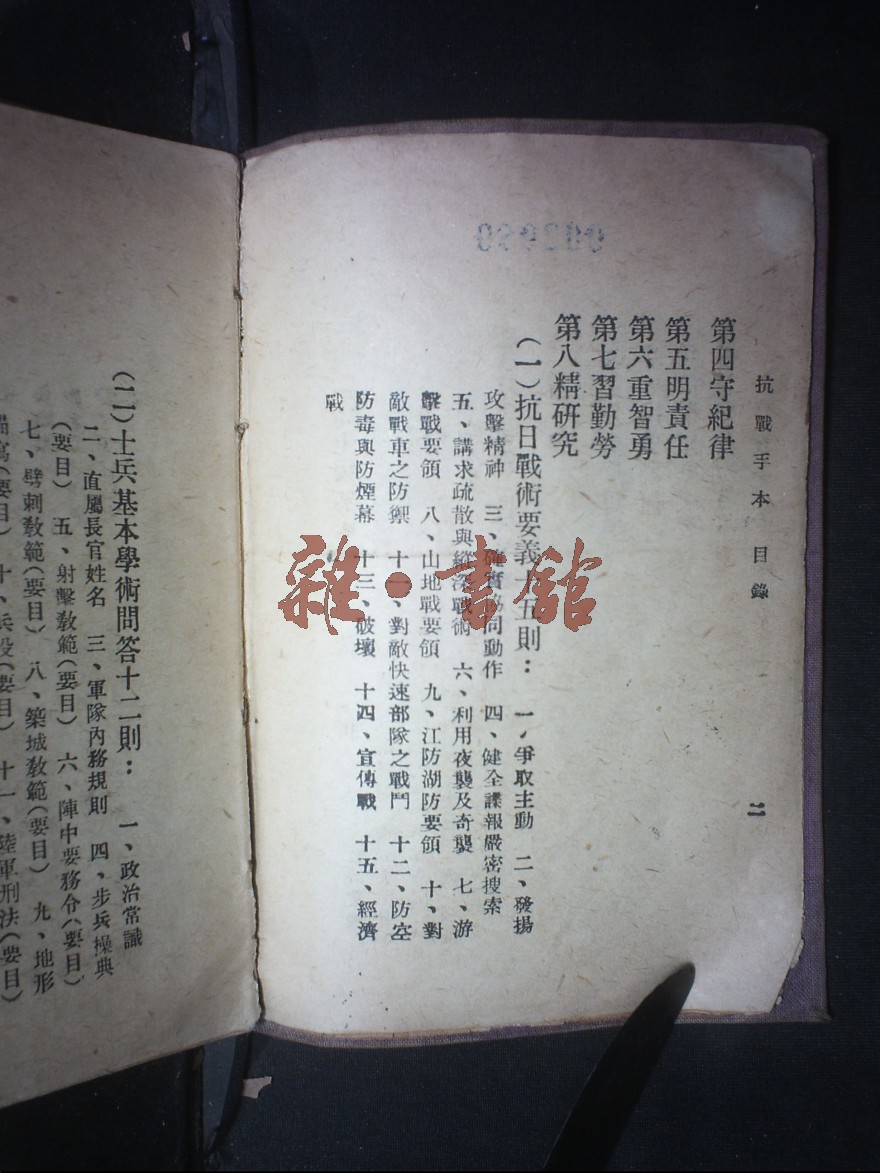 抗戰手本 目錄
二
第四守紀律
第五明責任
第六重智勇
第七習勤勞
第八精研究
(一)抗日戰術要義十五則： 一、爭取主動 二、發揚
攻擊精神 三、確實協同動作 四、健全諜報嚴密搜索
五、講求疏散與縱深戰術 六、利用夜襲及奇襲 七、游
擊戰要領 八、山地戰要領 九、江防湖防要領 十、對
敵戰車之防禦 十一、對敵快速部隊之戰鬥 十二、防空
防毒與防煙幕 十三、破壞 十四、宣傳戰 十五、經濟
戰
(二)士兵基本學術問答十二則： 一、政治常識
二、直屬長官姓名 三、軍隊內務規則 四、步兵操典
(要目) 五、射擊教範(要目) 六、陣中要務令(要目)
七、劈刺教範(要目) 八、築城教範(要目) 九、地形
(要目) 十、兵役(要目) 十一、陸軍刑法(要目)
雜·書館
002980